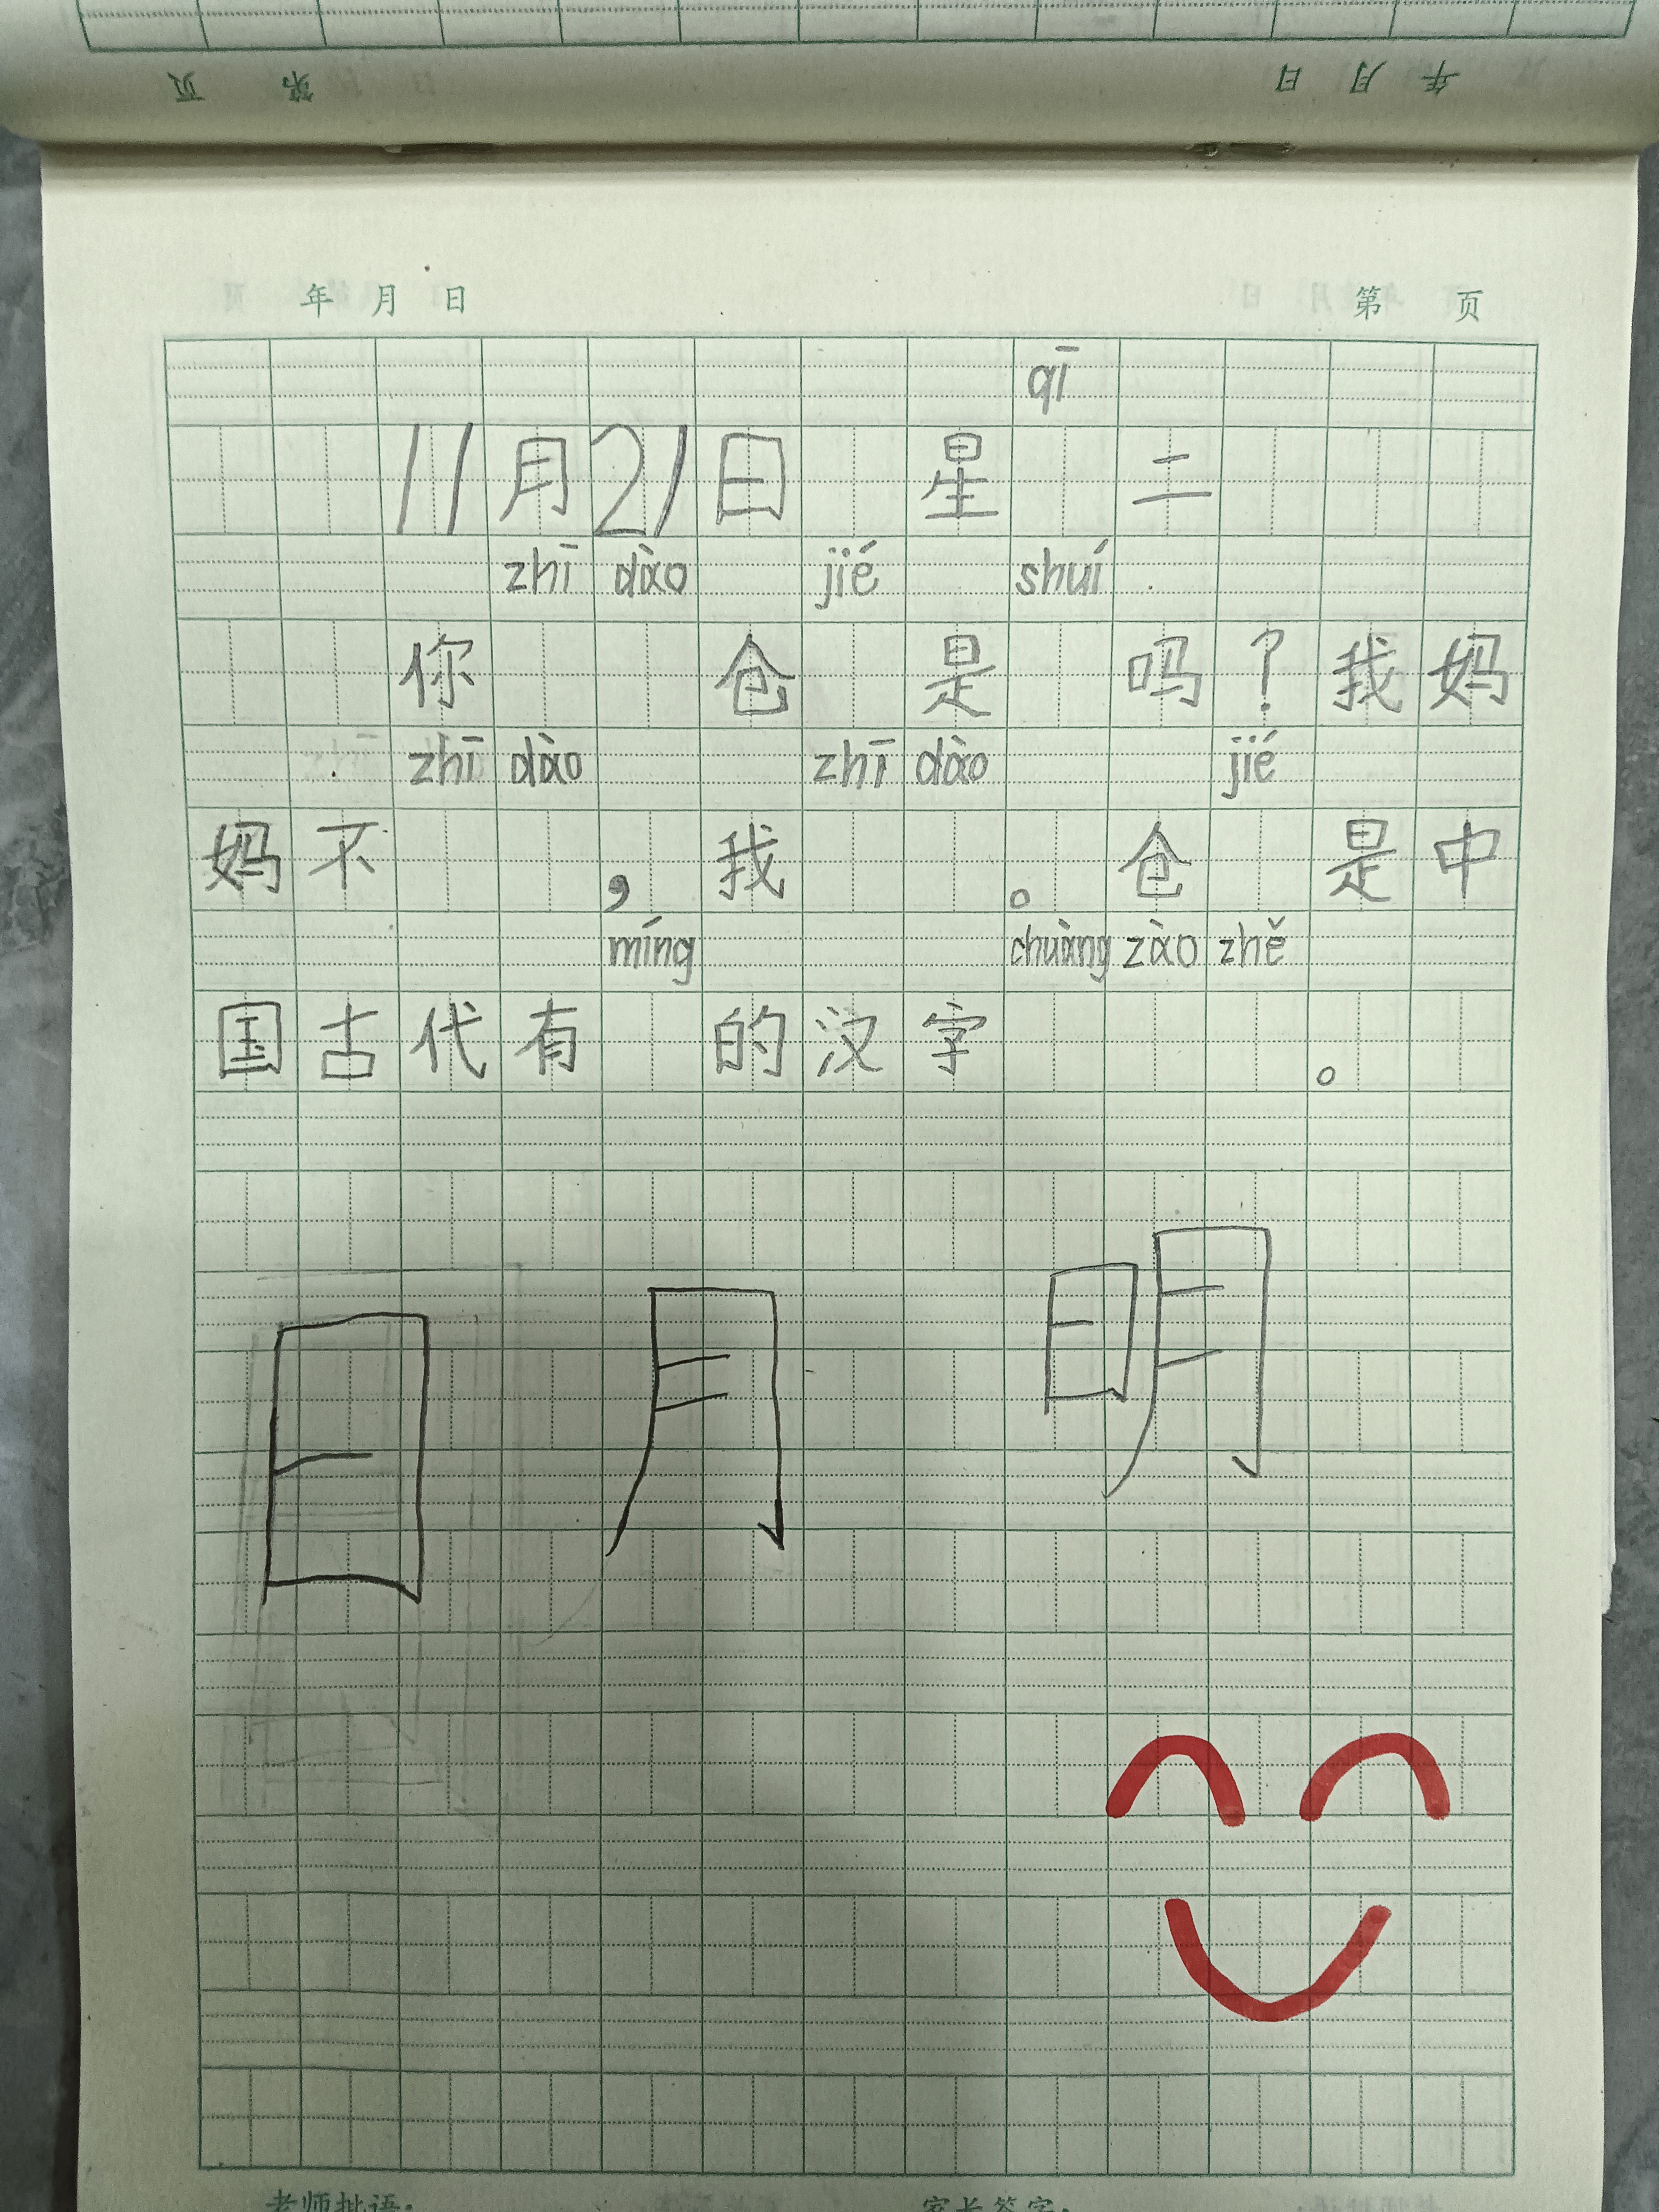 页 第 日 月 年
年 月 日 第 页
qī
11月21日 星 二
zhī dào jié shuí
你 仓 是 吗？我妈
zhī dào zhī dào jié
妈不 ，我 。仓 是中
míng chuàng zào zhě
国古代有 的汉字 。
日 月 明
老师批语： 家长签字：